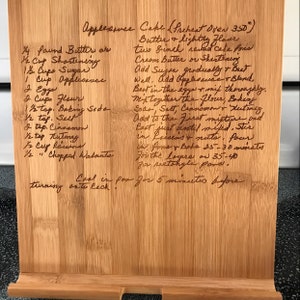 Applesauce Cake (Preheat Oven 350°)
Butter & lightly flour
½ pound Butter or two 9 inch round cake pans
½ Cup Shortening Cream Butter or Shortening
1½ Cups Sugar Add Sugar gradually & beat
1 Cup Applesauce Well. Add Applesauce & Blend
2 Eggs Beat in the eggs & mix thoroughly
2 Cups Flour Mix together the flour, Baking
1½ tsp. Baking Soda Soda, Salt, Cinnamon & Nutmeg
1 tsp. Salt Add to the first mixture and
2 tsp Cinnamon beat just until mixed. Stir
½ tsp Nutmeg in Raisins & nuts. Pour
½ Cup Raisins in pans & Bake 25-30 minutes
½ " Chopped Walnuts for the layers or 35-40
for rectangle pans.
Cool in pan for 5 minutes before
turning onto Rack.